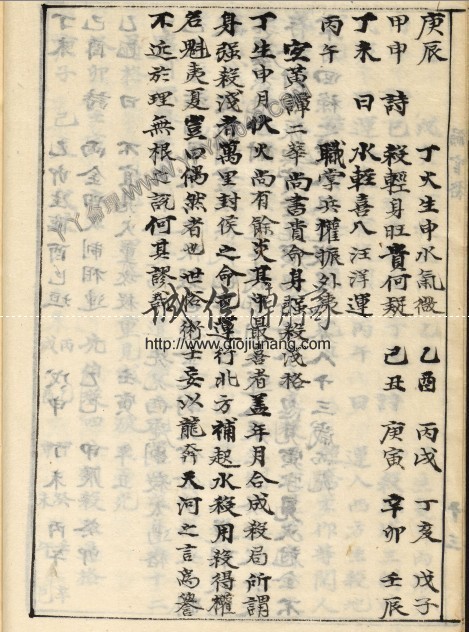 庚辰 丁火生申水氣微 乙酉 丙戌 丁亥 戊子
甲申 詩 殺輕身旺貴何疑 己丑 庚寅 辛卯 壬辰
丁未 曰 水輕喜入汪洋運
丙午 職掌兵權振外
黃譚二華尚書貴命身强殺淺格
丁生申月伏火尚有餘炎其最喜者盖年月合成殺局所謂
身强殺淺者萬里封侯之命運行北方補起水殺用殺得權
名魁夷夏豈曰偶然者也世俗術士妄以龍奔天河之言為
不近於理無根之說何其謬哉
http://www.qiojiunang.com